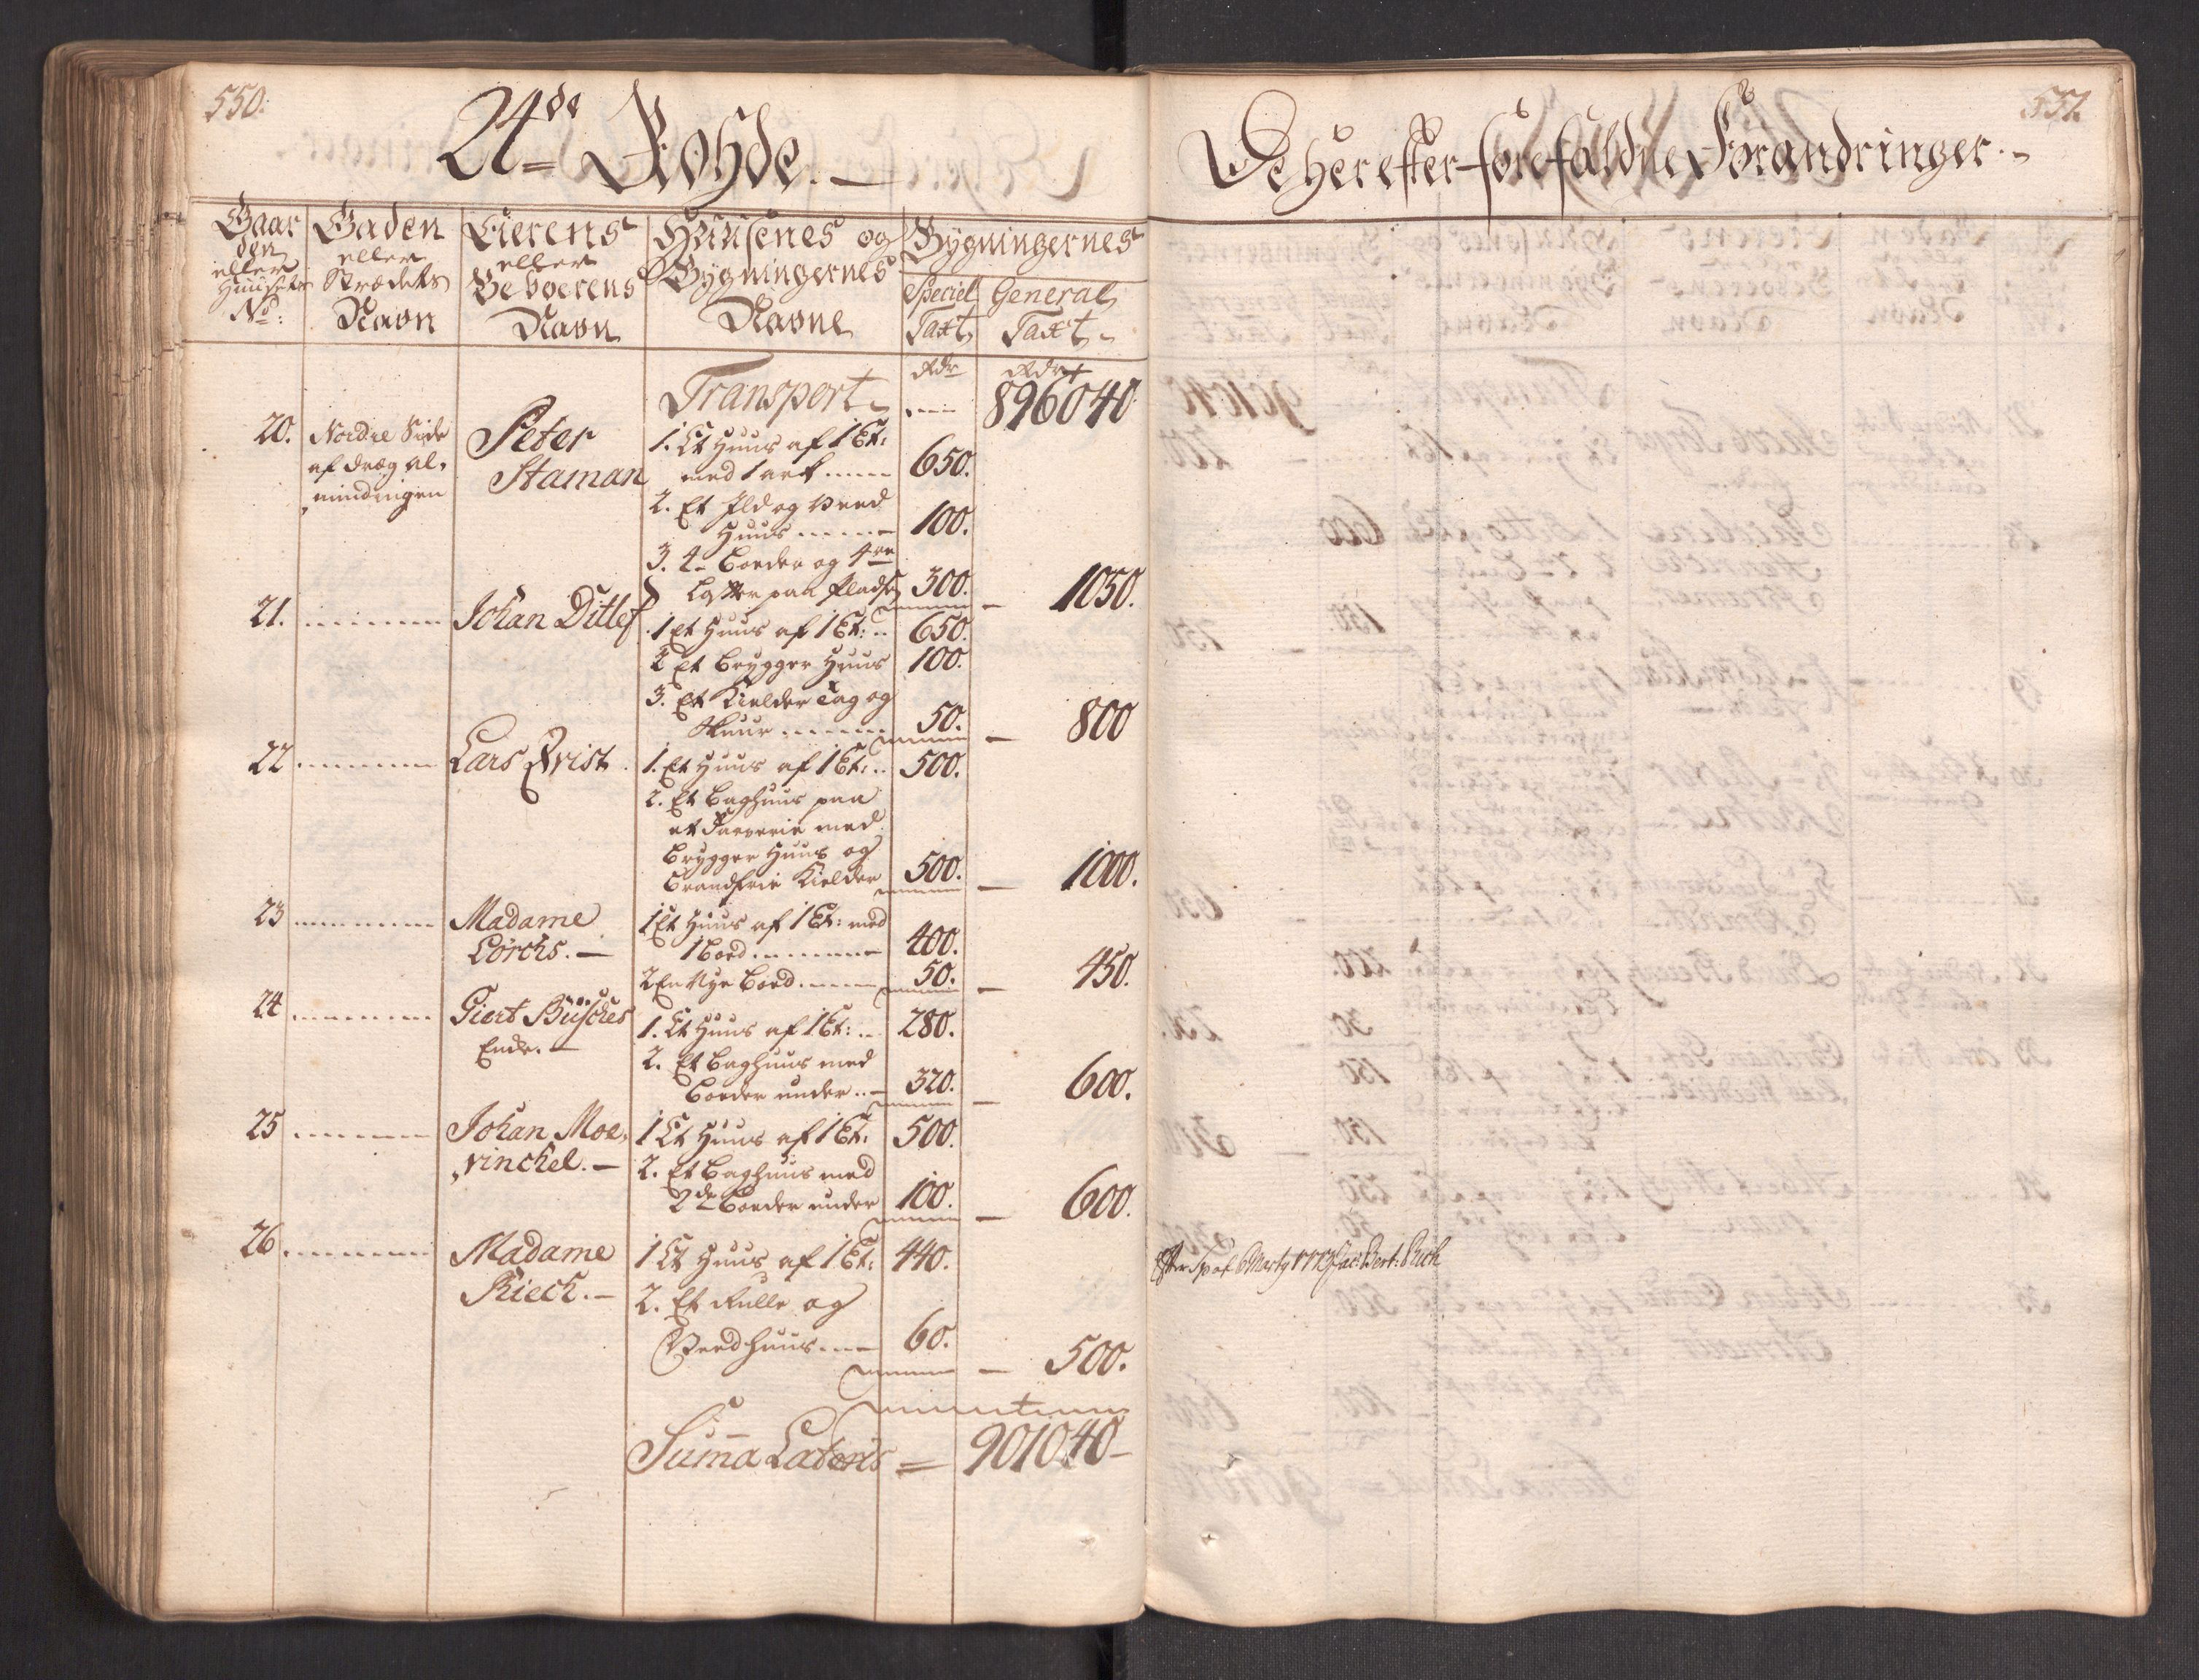 550.
24de Rohde.
Gaar
den
eller
Huusets
No:
Gaden
eller
Strædets
Navn
Eierens
eller
Beboerens
Navn
Huusenes og
Bygningernes
Navne
Bygningernes
Speciel
Taxt
General
Taxt
Rdr
Rdr
Transport 896040
20. Nordre Side
af dræg al-
mindingen
Peter
Staman
1. Et Huus af 1 Et:
med 1 ark 650.
2. Et Ild og Veed
Huus 100.
3. 4 Boeder og 4re
Lofter paa Pladsen 300. 1050.
21. Johan Ditlef
1 et Huus af 1 Et: 650.
2 Et Brygger Huus 100.
3. Et Kielder Tag og
Skuur 50. 800
22 Lars Qvist
1. Et Huus af 1 Et: 500.
2. Et Baghuus paa
et Farverie med
Brygger Huus og
Brandfrie Kielder 500. 1000.
23 Madame
Lorchs.
1 Et Huus af 1 Et: med
1 Boed 400.
2 En Nye Boed 50. 450.
24 Giert Büsches
Enke.
1. Et Huus af 1 Et: 280.
2. Et Baghuus med
Boeder under 320. 600.
25 Johan Moe-
vinckel.
1 Et Huus af 1 Et: 500.
2. Et Baghuus med
2de Boeder under 100. 600.
26 Madame
Riech.
1 Et Huus af 1 Et: 440.
2. Et Rulle og
Veedhuus 60. 500.
Summa Lateris 901040
551.
De Herefter forefaldne Forandringer
Efter af 6 Marty Jac: Bert: